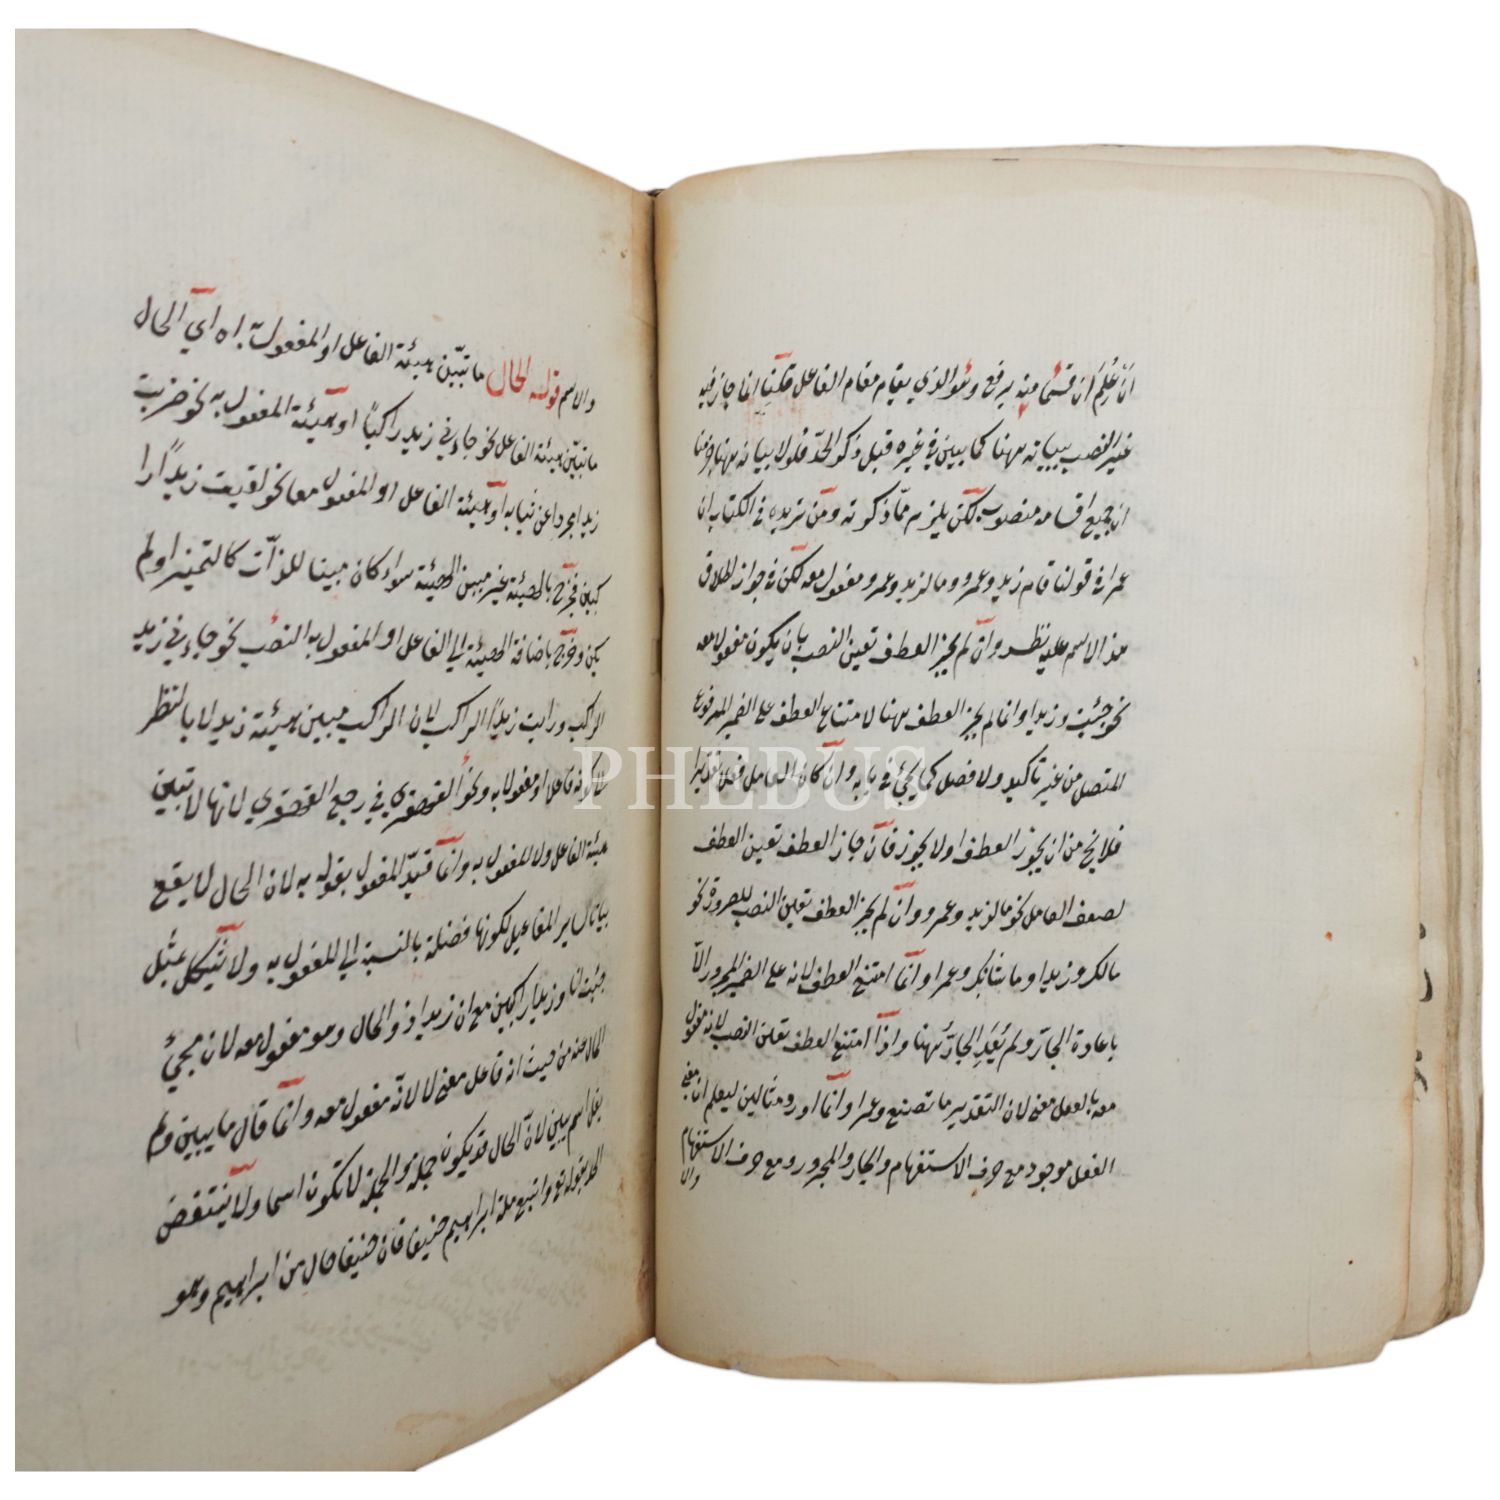 ان عُلِمَ ان قسمًا منه يرفع وهو الذي يقام مقام الفاعل قلنا انما جاز فيه
غير النصب ببيانه ههنا كما يبين في غيره قبل ذكر الحدّ فلولا بيانه ههنا
ان جميع اقسامه منصوب لكن يلزم ممّا ذكرته ومن تريده في الكتاب ان
عمرا في قولنا قام زيد وعمرو وما لزيد وعمرو مفعول معه لكن في جواز اطلاق
هذا الاسم عليه نظر وان لم يجز العطف تعين النصب بان يكون مفعولا معه
نحو جئت وزيدا وانما لم يجز العطف ههنا لامتناع العطف على الضمير المرفوع
المتصل من غير تاكيد ولا فصل كما يجئ في بابه وان كان العامل فعلا تقديرا
فلا يخ من ان يجوز العطف او لا يجوز فان جاز العطف تعين العطف
لضعف العامل نحو ما لزيد وعمرو وان لم يجز العطف تعين النصب للضرورة نحو
مالك وزيدا وما شانك وعمرا وانما امتنع العطف لانه على الضمير المجرور الّا
باعادة الجارّ ولم يُعَدِ الجارُّ ههنا واذا امتنع العطف تعين النصب لانه مفعول
معه بالفعل معنى لان التقدير ما تصنع وعمرا وانما اورد مثالين ليعلم ان معنى
الفعل موجود مع حرف الاستفهام والجار والمجرور ومع حرف الاستفهام
والا
والاسم قوله الحال ما تبيّن هيئة الفاعل او المفعول به اه اي الحال
ما تبيّن هيئة الفاعل نحو جاءني زيد راكبًا او هيئة المفعول به نحو ضربت
زيدا مجردا عن ثيابه او هيئة الفاعل او المفعول معا نحو لقيت زيدًا را
كبين فخرج بالهيئة غير مبين الهيئة سواء كان مبينا للذات كالتمييز او لم
يكن وخرج باضافة الهيئة الى الفاعل او المفعول به النصب نحو جاءني زيد
الراكب ورايت زيدًا الراكب لان الراكب مبين هيئة زيد لا بالنظر
لكونه فاعلا او مفعولا به ونحو القهقرى في رجع القهقرى لانها لا تبين
هيئة الفاعل ولا للمفعول به وانما قيّد المفعول بقوله به لان الحال لا يقع
بيانا لساير المفاعيل لكونها فضلة بالنسبة الى المفعول به ولا يشكل بمثل
جئت انا وزيدا راكبين مع ان زيدا ذو الحال وهو مفعول معه لان مجئ
الحال عنه من حيث انه فاعل معنى لا لانّه مفعول معه وانما قال ما يبين ولم
يقل اسم يبين لان الحال قد يكون جملة والجملة لا تكون اسما ولا ينتقض
الحد بقوله تع واتبع ملة ابراهيم حنيفا فان حنيفا حال من ابراهيم وهو
PHEBUS